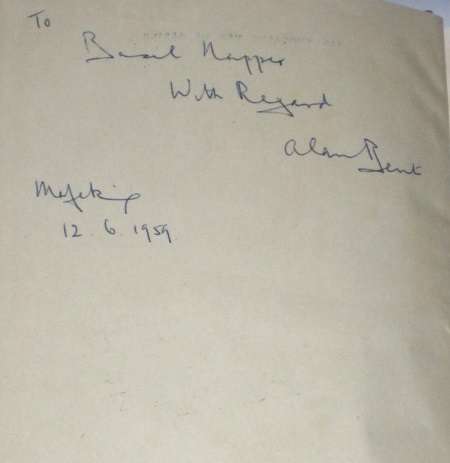 To
Basil Napper
With Regard
Alan Bent
Mafeking
12.6.1959